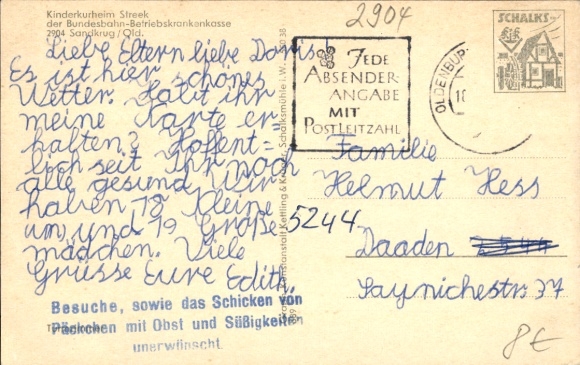 Kinderkurheim Streek
der Bundesbahn-Betriebskrankenkasse
2904 Sandkrug / Old.
2904
Liebe Eltern liebe Doris!
Es ist hier schönes
Wetter. Habt ihr
meine Karte er
halten? Hoffent=
lich seit Ihr noch
alle gesund. Wir
haben 18 kleine
um, und 19 Große
mädchen. Viele
Grüsse Eure Edith.
Besuche, sowie das Schicken von
Päckchen mit Obst und Süßigkeiten
unerwünscht.
JEDE
ABSENDER-
ANGABE
MIT
POSTLEITZAHL
OLDENBUR
SCHALKS-
Familie
Helmut Hess
5244
Daaden
Saynichestr. 37
Kunstanstalt Kettling & Krüger, Schalksmühle i. W.
8€